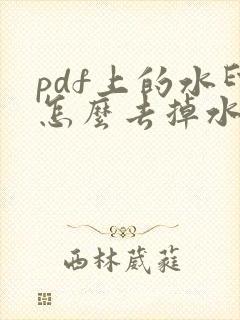 pdf上的水印
怎麼去掉水
西林葳蕤